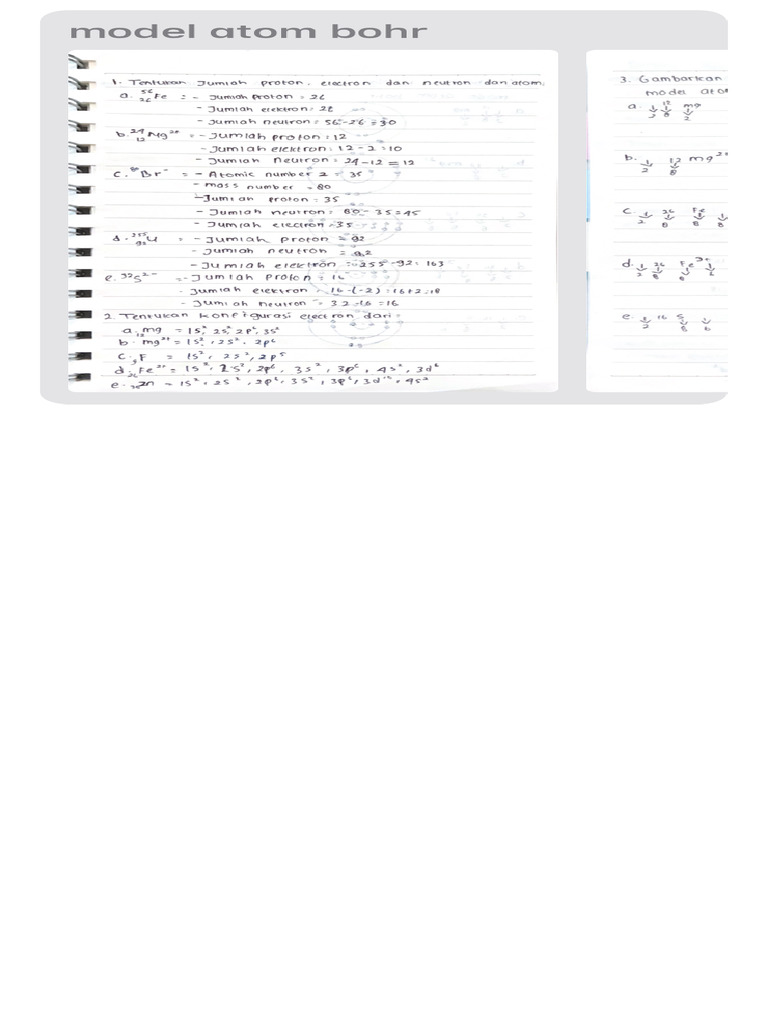 model atom bohr
1. Tentukan Jumlah proton, electron dan neutron dan atom,
a. ⁵⁶₂₆Fe = - Jumlah proton = 26
- Jumlah elektron = 26
- Jumlah neutron = 56 - 26 = 30
b. ²⁴₁₂Mg²⁺ = - Jumlah proton = 12
- Jumlah elektron = 12 - 2 = 10
- Jumlah Neutron = 24 - 12 = 12
c. ⁸⁰Br⁻ = - Atomic number 2 = 35
- mass number = 80
- Jumlah proton = 35
- Jumlah neutron = 80 - 35 = 45
- Jumlah electron = 35
d. ²⁵⁵₉₂U = - Jumlah proton = 92
- Jumlah neutron = 92
- Jumlah elektron = 255 - 92 = 163
e. ³²S²⁻ = - Jumlah proton = 16
- Jumlah elektron = 16 - (-2) = 16 + 2 = 18
- Jumlah neutron = 32 - 16 = 16
2. Tentukan konfigurasi electron dari =
a. ₁₂mg = 1s², 2s², 2p⁶, 3s²
b. mg²⁺ = 1s², 2s², 2p⁶
c. ₉F = 1s², 2s², 2p⁵
d. ₂₆Fe²⁺ = 1s², 2s², 2p⁶, 3s², 3p⁶, 4s², 3d⁶
e. ₃₀Zn = 1s², 2s², 2p⁶, 3s², 3p⁶, 3d¹⁰, 4s²
3. Gambarkan
model ato
a. 12 mg
2 8 2
b. 12 mg²⁺
2 8
c. 26 Fe
2 8 8 8
d. 26 Fe 3+
2 8 8
e. 16 S
2 8 6